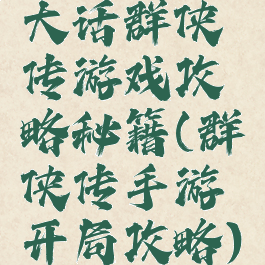 大话群侠
传游戏攻
略秘籍(群
侠传手游
开局攻略)